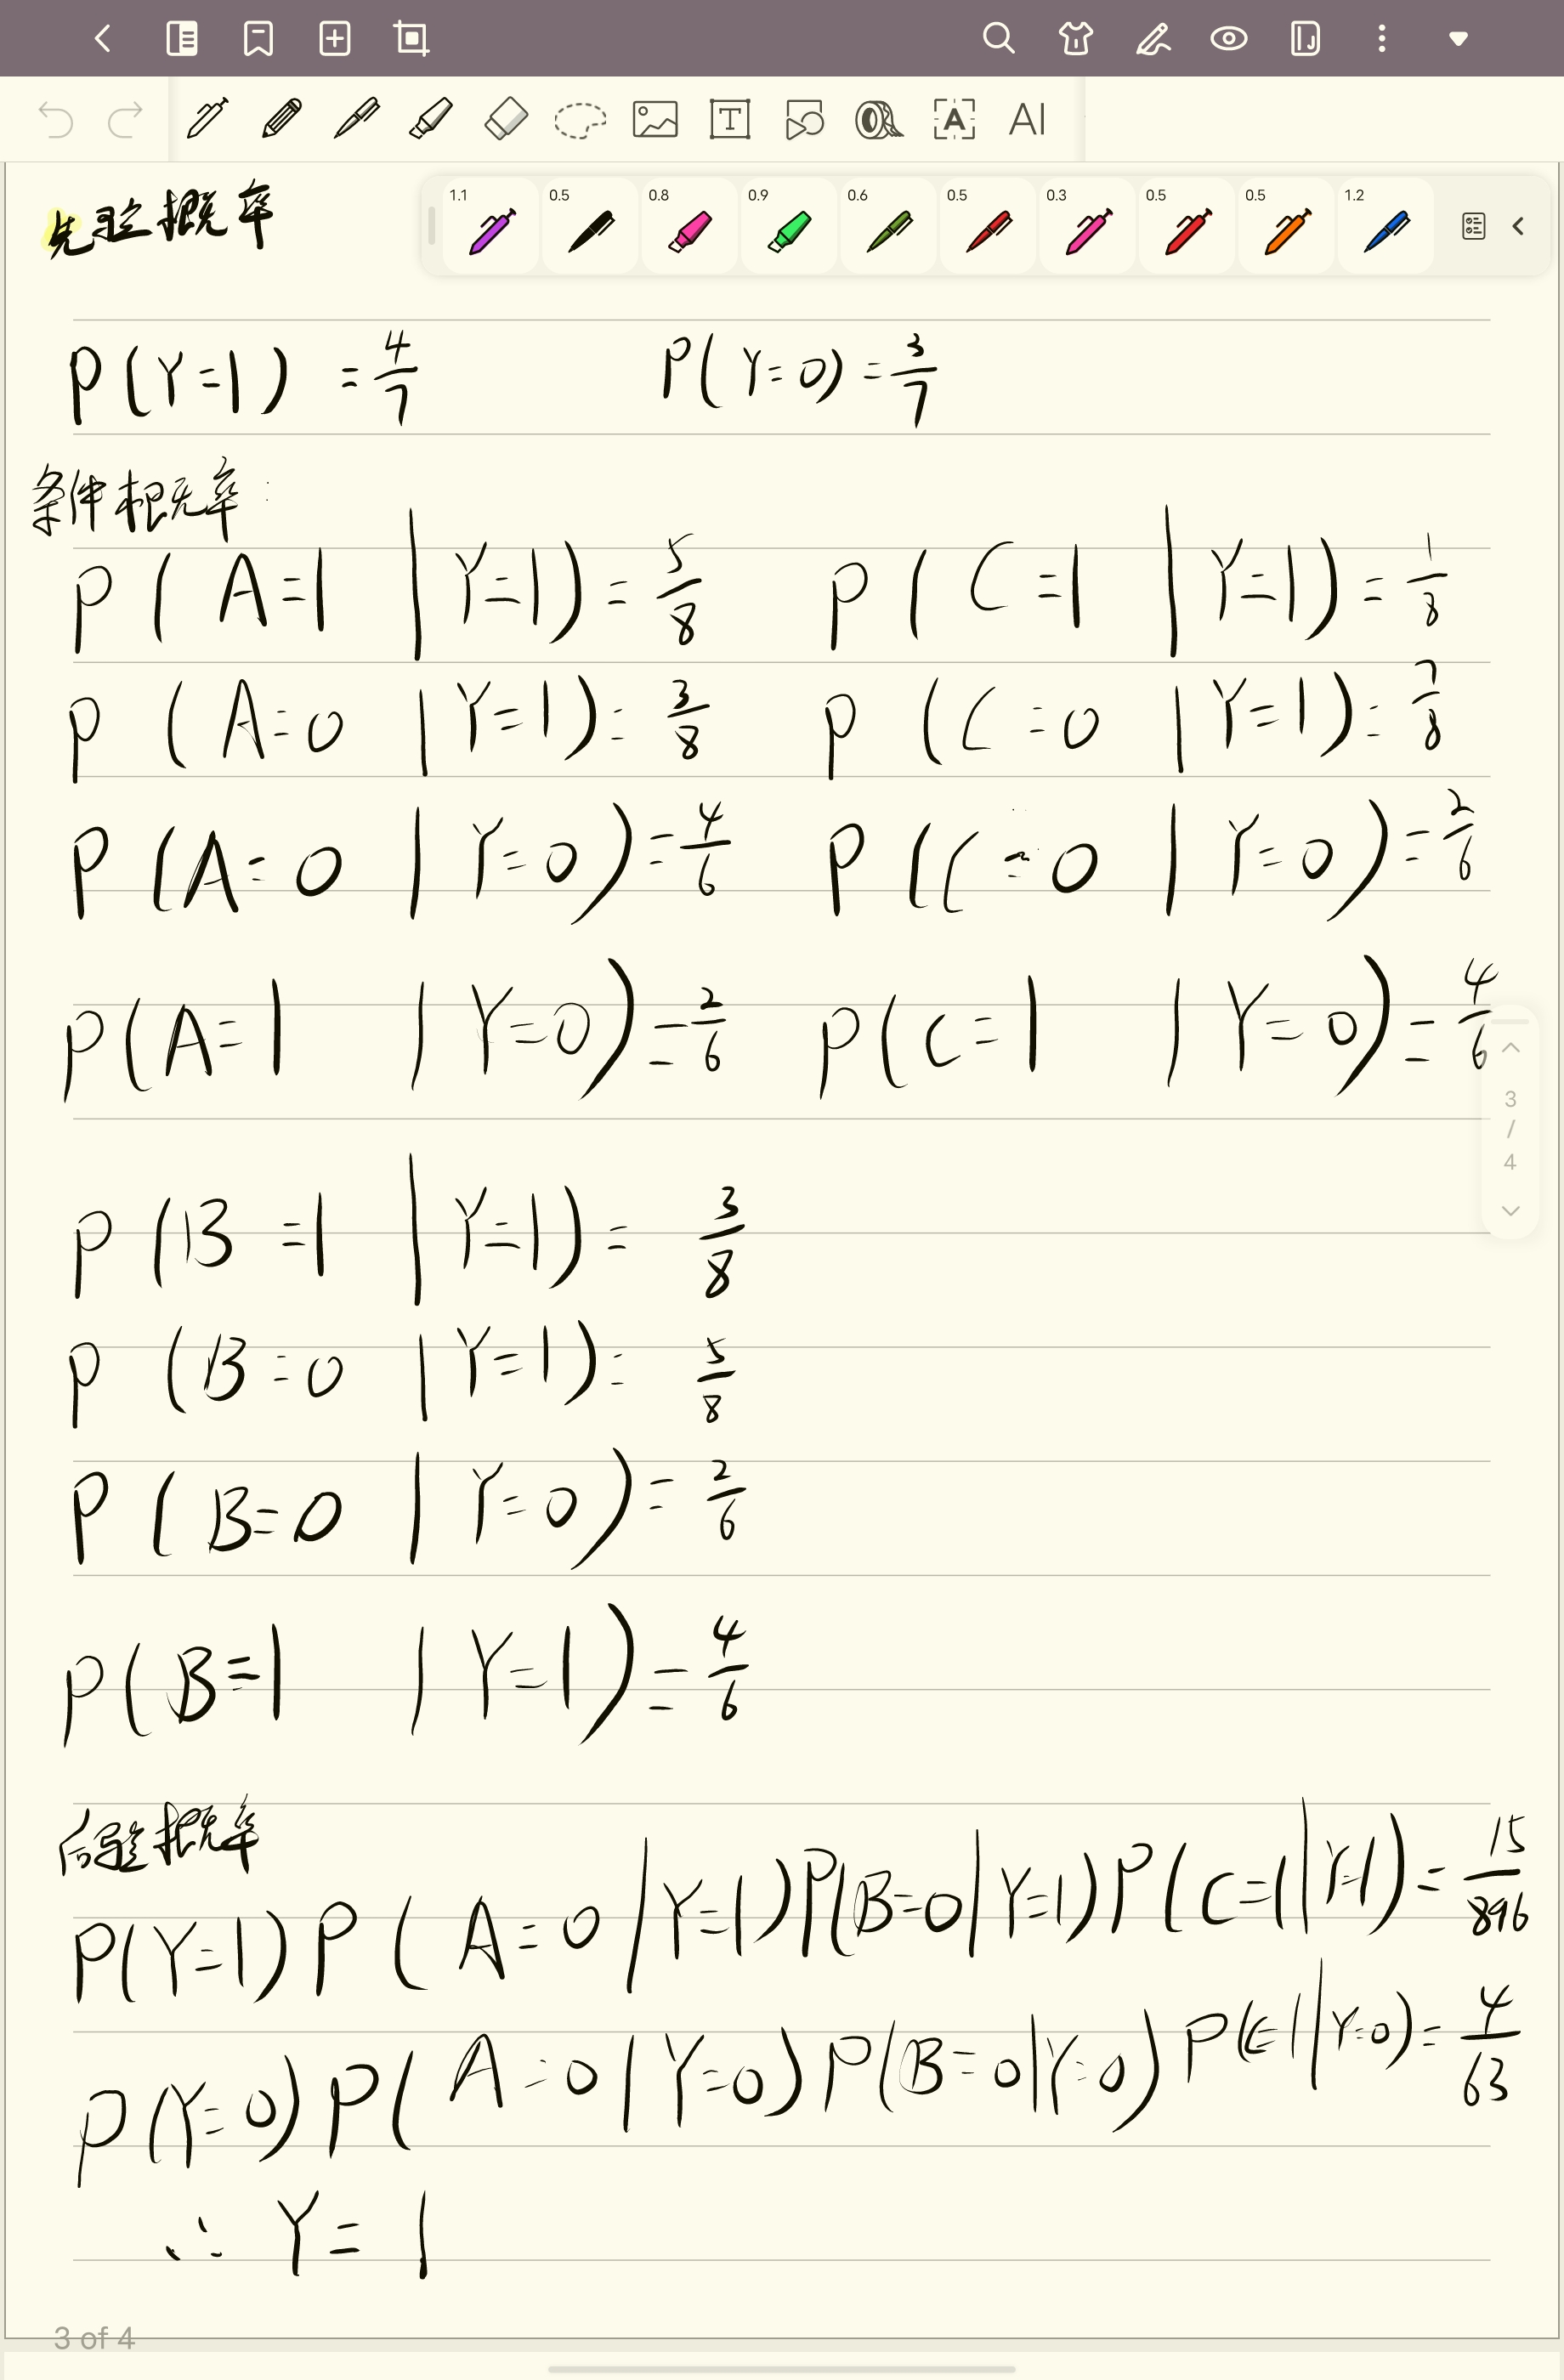 AI
先验概率
1.1 0.5 0.8 0.9 0.6 0.5 0.3 0.5 0.5 1.2
P(Y=1) = 4/7 P(Y=0) = 3/7
条件概率:
P(A=1 | Y=1) = 5/8 P(C=1 | Y=1) = 1/8
P(A=0 | Y=1) = 3/8 P(C=0 | Y=1) = 7/8
P(A=0 | Y=0) = 4/6 P(C=0 | Y=0) = 2/6
P(A=1 | Y=0) = 2/6 P(C=1 | Y=0) = 4/6
3
/
4
P(B=1 | Y=1) = 3/8
P(B=0 | Y=1) = 5/8
P(B=0 | Y=0) = 2/6
P(B=1 | Y=1) = 4/6
后验概率
P(Y=1)P(A=0|Y=1)P(B=0|Y=1)P(C=1|Y=1) = 15/896
P(Y=0)P(A=0|Y=0)P(B=0|Y=0)P(C=1|Y=0) = 4/63
∴ Y=1
3 of 4